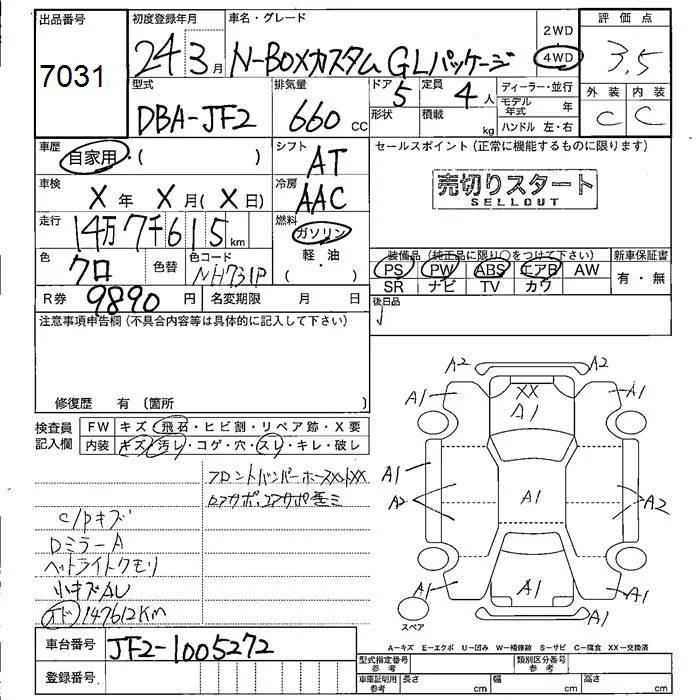 出品番号 初度登録年月 車名・グレード 2WD 評価点
7031 24 3月 N-BOXカスタム GLパッケージ 4WD 3.5
型式 排気量 ドア 定員 ディーラー・並行 外装 内装
DBA-JF2 660cc 5 4人 モデル年式 年 C C
形状 積載 kg ハンドル 左・右
車歴 シフト セールスポイント(正常に機能するものに限ります)
自家用・( ) AT
車検 冷房 売切りスタート
X年 X月(X日) AAC SELLOUT
走行 燃料
14万7千615km ガソリン
色 色替 色コード 軽・油 装備品(純正品に限り○をつけて下さい) 新車保証書
クロ NH731P ( ) PS PW ABS エアB AW 有・無
SR ナビ TV カワ
R券 9890円 名変期限 月 日 後日品
注意事項申告欄(不具合内容等は具体的に記入して下さい)
修復歴 有 〔箇所 〕
検査員記入欄 FW キズ・飛石・ヒビ割・リペア跡・X要
内装 キズ・汚レ・コゲ・穴・スレ・キレ・破レ
A2 A2
A1 XX A1
A1
A1
A2 A1 A2
A1 A1 A1
スペア
c/pキズ
Dミラー A
ヘットライトクモリ
小キズAU
オド 147612Km
A-キズ E-エクボ U-凹み W-補修跡 S-サビ C-腐食 XX-交換済
車台番号 JF2-1005272
型式指定番号 参考 類別区分番号 参考
登録番号
車庫証明用 参考 長さ cm 幅 cm 高さ cm